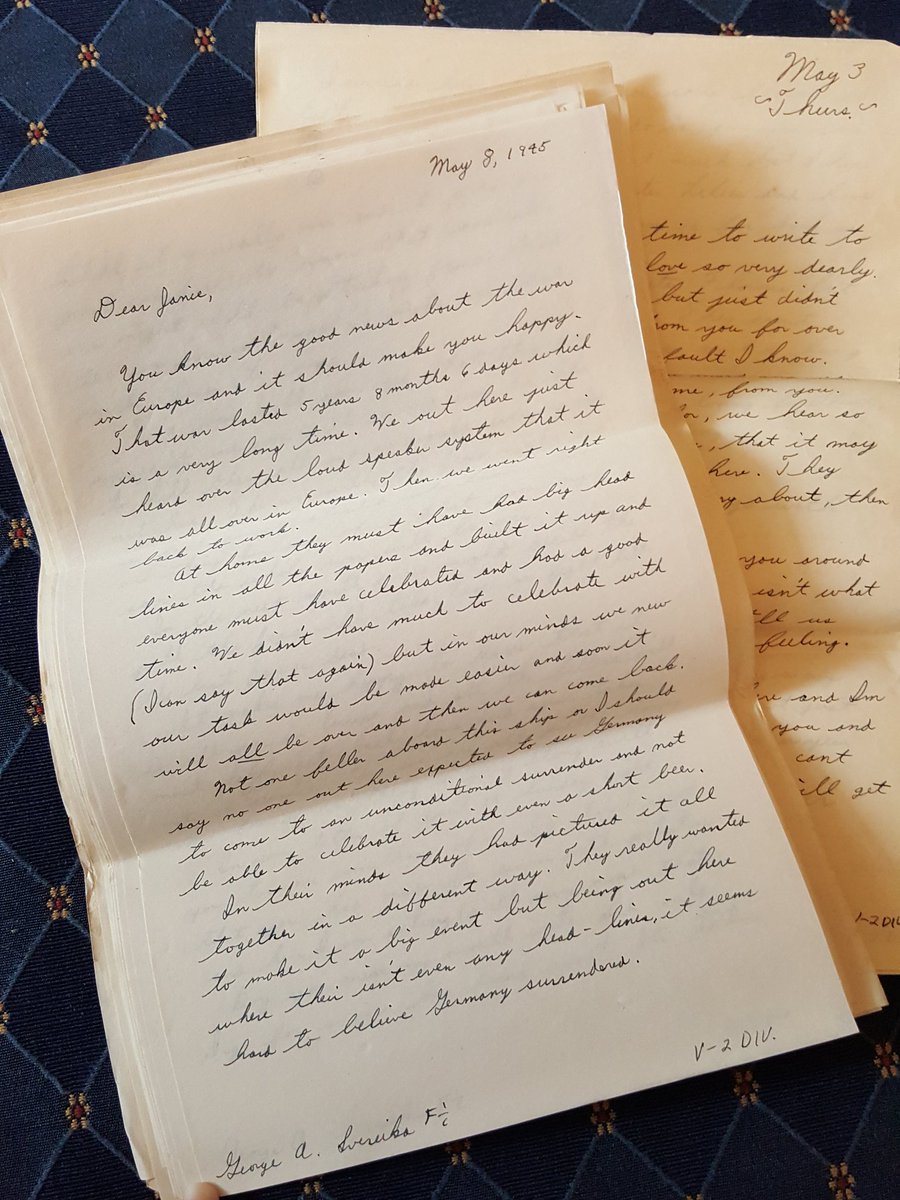 May 8, 1945
Dear Janie,
You know the good news about the war
in Europe and it should make you happy.
That war lasted 5 years 8 months 6 days which
is a very long time. We out here just
heard over the loud speaker system that it
was all over in Europe. Then we went right
back to work.
At home they must have had big head
lines in all the papers and built it up and
everyone must have celebrated and had a good
time. We didn't have much to celebrate with
(I can say that again) but in our minds we new
our task would be made easier and soon it
will all be over and then we can come back.
Not one feller aboard this ship or I should
say no one out here expected to see Germany
to come to an unconditional surrender and not
be able to celebrate it with even a short beer.
In their minds they had pictured it all
together in a different way. They really wanted
to make it a big event but being out here
where their isn't even any head-lines, it seems
hard to believe Germany surrendered.
V-2 DIV.
George A. F 1/c
May 3
~Thurs.~
time to write to
love so very dearly.
but just didn't
from you for over
fault I know.
me, from you.
, we hear so
, that it may
here. They
about, then
you around
isn't what
us
feeling.
and Im
you and
cant
get
-2 DIV